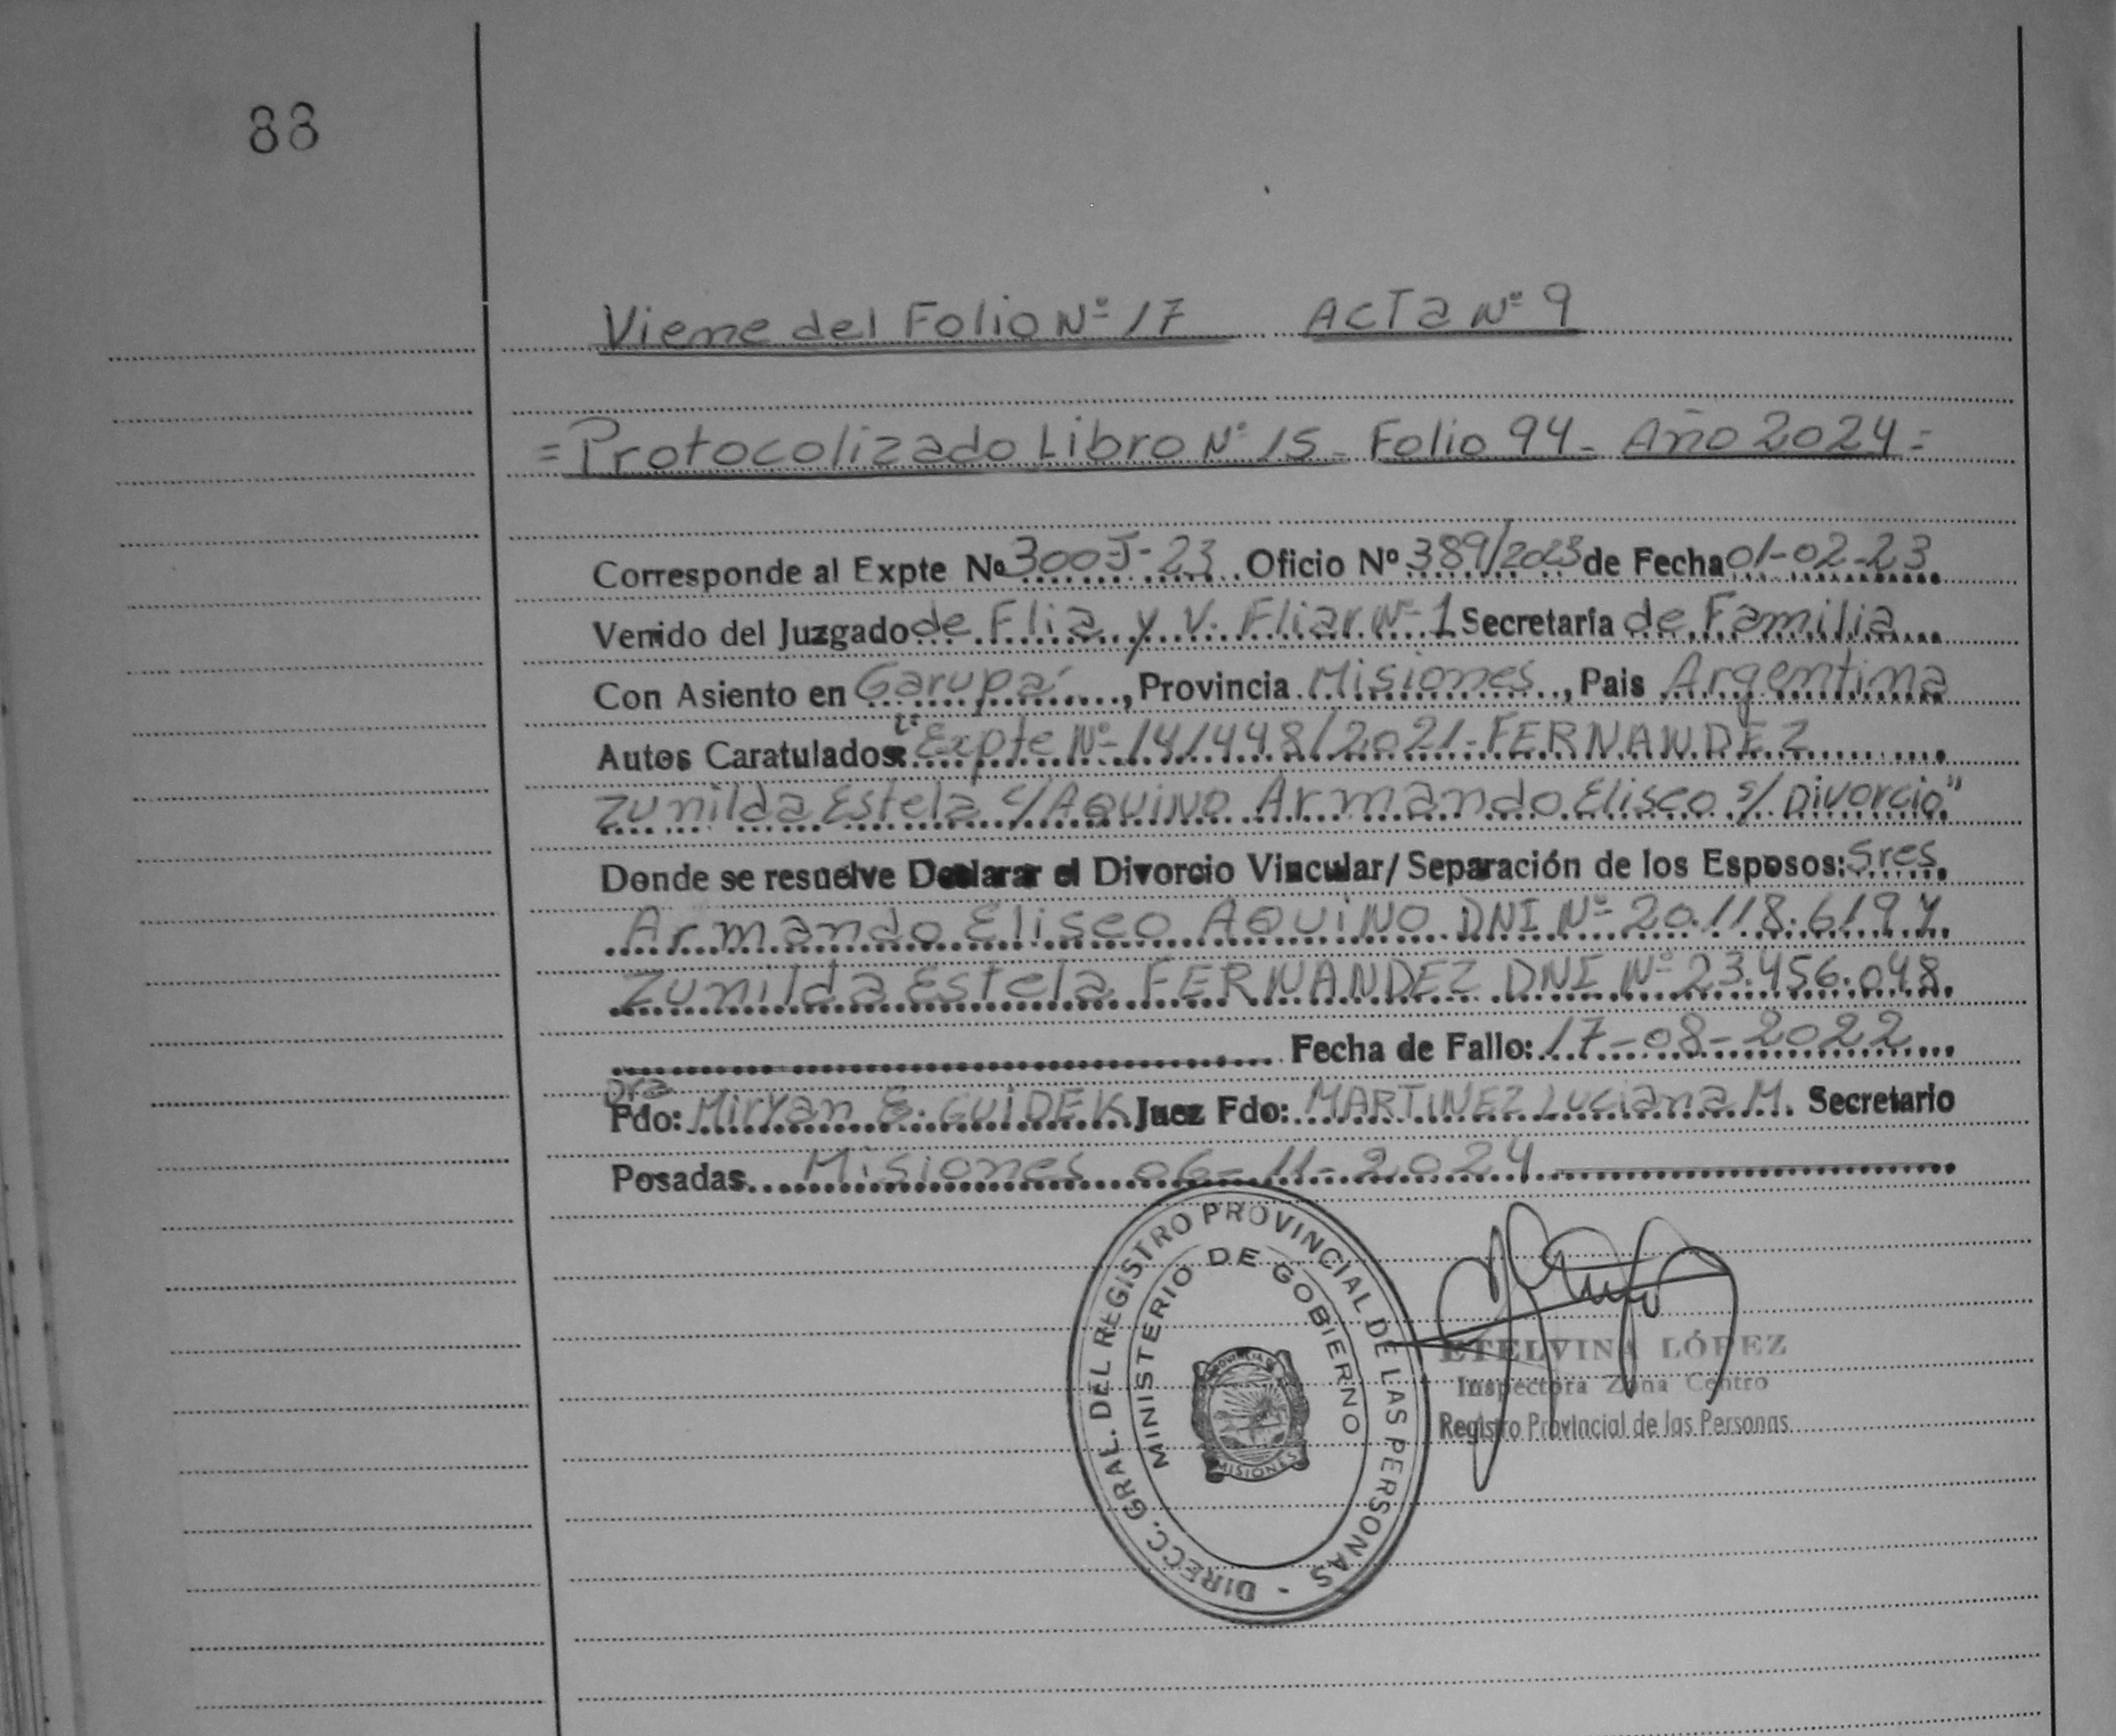 88
Viene del Folio Nº 17 Acta Nº 9
= Protocolizado Libro Nº 15 - Folio 94 - Año 2024 =
Corresponde al Expte Nº 300J-23 Oficio Nº 389/2023 de Fecha 01-02-23
Venido del Juzgado de Flia y V. Fliar Nº 1 Secretaría de Familia
Con Asiento en Garupá, Provincia Misiones, Pais Argentina
Autos Caratulados: "Expte Nº 141448/2021 - FERNANDEZ
Zunilda Estela c/ AQUINO Armando Eliseo s/ Divorcio"
Donde se resuelve Declarar el Divorcio Vincular/ Separación de los Esposos: Sres
Armando Eliseo AQUINO DNI Nº 20.118.619 y
Zunilda Estela FERNANDEZ DNI Nº 23.456.048
Fecha de Fallo: 17-08-2022
Dra
Fdo: Miryan E. GUIDEK Juez Fdo: MARTINEZ Luciana M. Secretario
Posadas Misiones 06-11-2024
DIRECC. GRAL. DEL REGISTRO PROVINCIAL DE LAS PERSONAS -
MINISTERIO DE GOBIERNO
MISIONES
ETELVINA LÓPEZ
Inspectora Zona Centro
Registro Provincial de las Personas